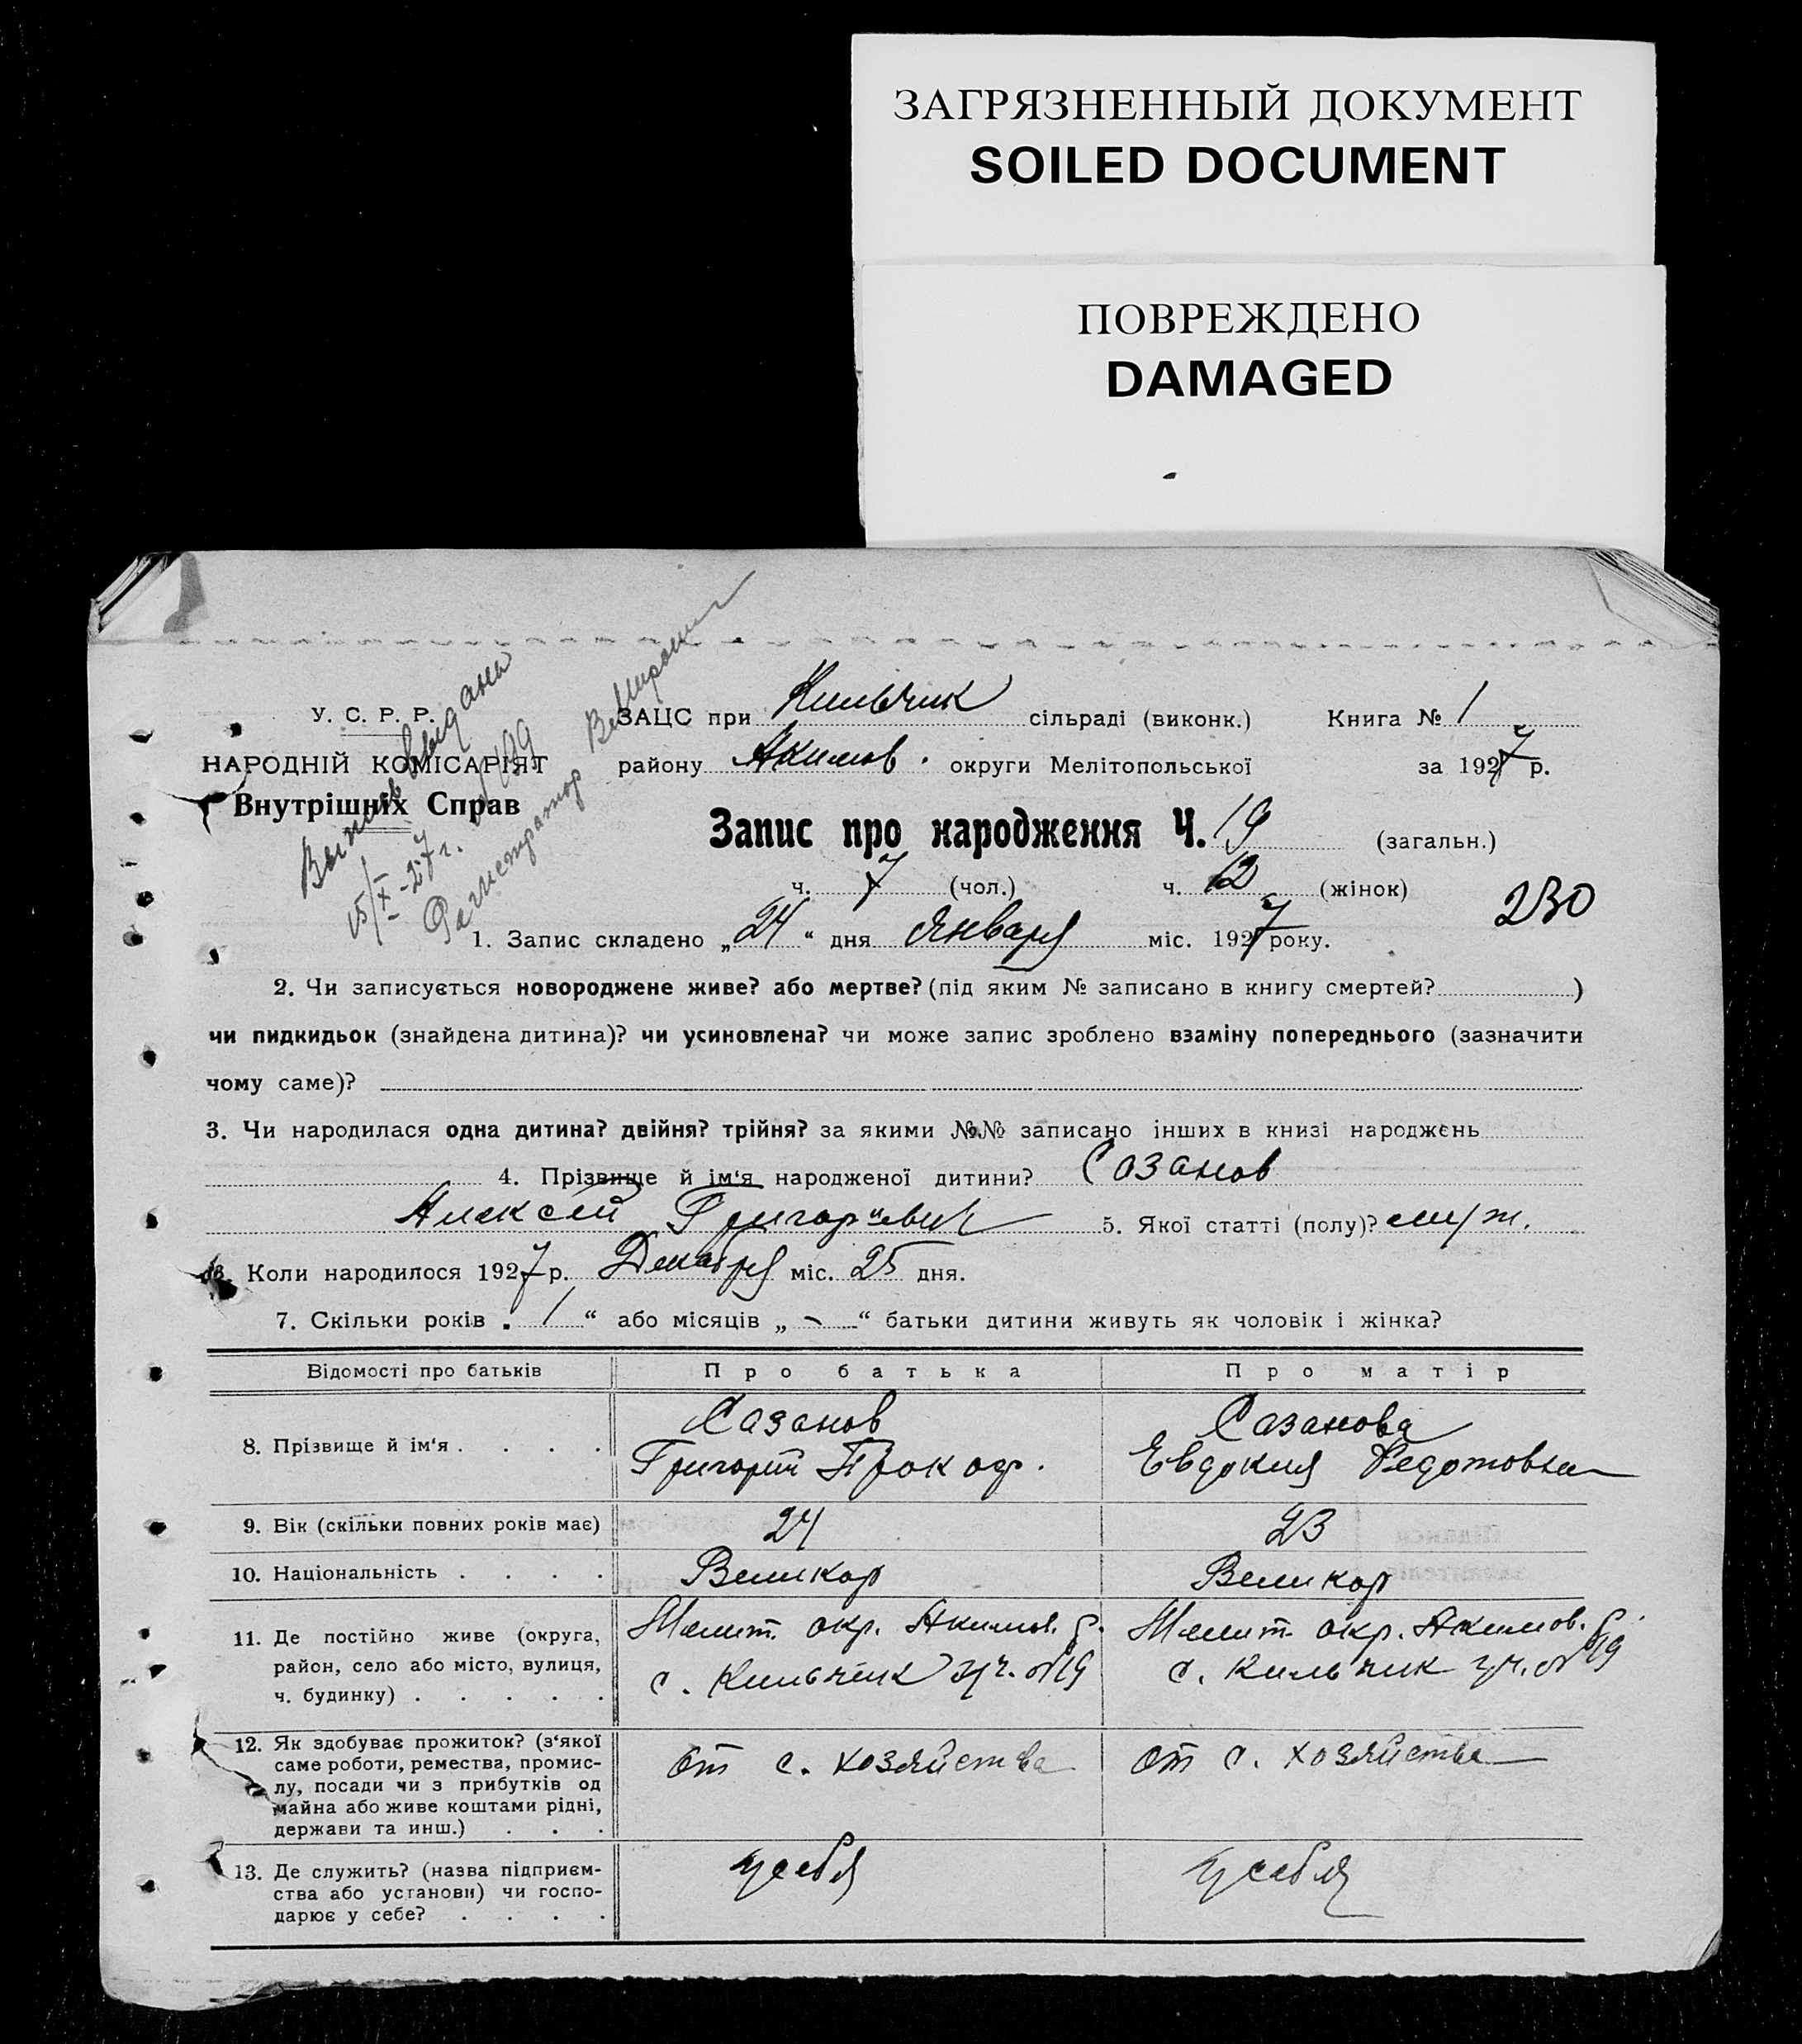 ЗАГРЯЗНЕННЫЙ ДОКУМЕНТ
SOILED DOCUMENT
ПОВРЕЖДЕНО
DAMAGED
У. С. Р. Р.
НАРОДНІЙ КОМІСАРІЯТ
Внутрішніх Справ
Выпись выдана
15/X-27 г. №199
Регистратор
ЗАЦС при Кильчик сільраді (виконк.) Книга № 1
району Акимов. округи Мелітопольської за 1927 р.
Запис про народження Ч. 19 (загальн.)
ч. 7 (чол.) ч. 12 (жінок)
230
1. Запис складено „24“ дня Января міс. 1927 року.
2. Чи записується новороджене живе? або мертве? (під яким № записано в книгу смертей? )
чи пидкидьок (знайдена дитина)? чи усиновлена? чи може запис зроблено взаміну попереднього (зазначити
чому саме)?
3. Чи народилася одна дитина? двійня? трійня? за якими №№ записано інших в книзі народжень
4. Прізвище й ім‘я народженої дитини? Сазанов
Алексей Григорьевич 5. Якої статті (полу)? муж.
6. Коли народилося 1927 р. Декабря міс. 25 дня.
7. Скільки років „ 1 “ або місяців „ - “ батьки дитини живуть як чоловік і жінка?
Відомості про батьків Про батька Про матір
8. Прізвище й ім‘я . . . . Сазанов Григорий Прокоф. Сазанова Евдокия Федотовна
9. Вік (скільки повних років має) 24 23
10. Національність . . . . Великор Великор
11. Де постійно живе (округа, Мелит. окр. Акимов. р. Мелит. окр. Акимов. р.
район, село або місто, вулиця, с. Кильчик уч. №19 с. Кильчик уч. №19
ч. будинку) . . . . .
12. Як здобуває прожиток? (з‘якої
саме роботи, ремества, промис- от с. хозяйства от с. хозяйства
лу, посади чи з прибутків од
майна або живе коштами рідні,
держави та инш.) . . .
13. Де служить? (назва підприєм- у себя у себя
ства або установи) чи госпо-
дарює у себе? . . . .